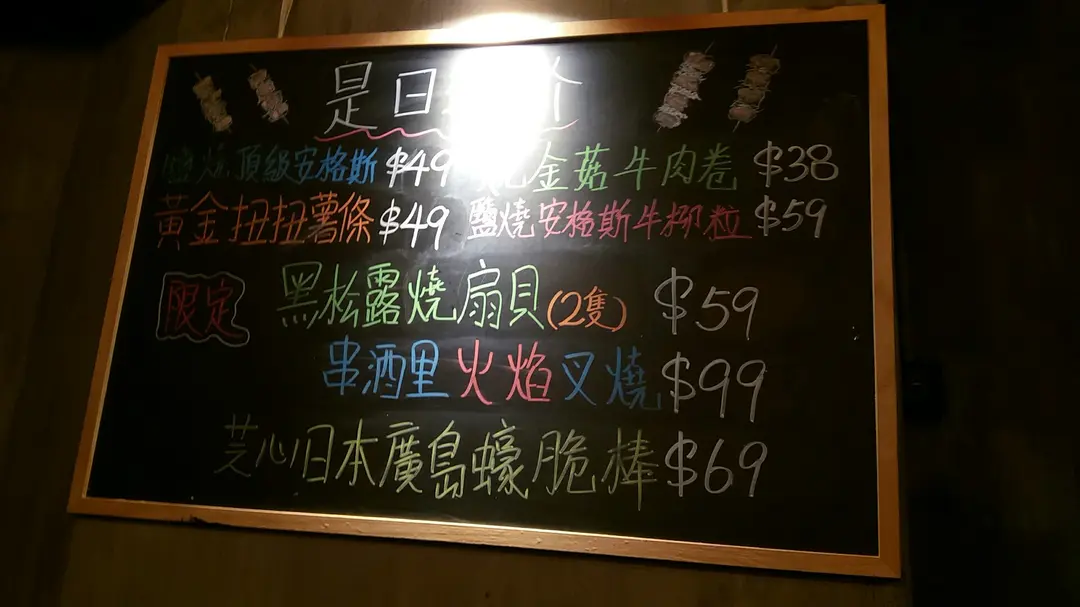 是日 介
鹽燒頂級安格斯 $49 金菇牛肉卷 $38
黃金扭扭薯條 $49 鹽燒安格斯牛柳粒 $59
限定 黑松露燒扇貝(2隻) $59
串酒里火焰叉燒 $99
芝心日本廣島蠔脆棒 $69